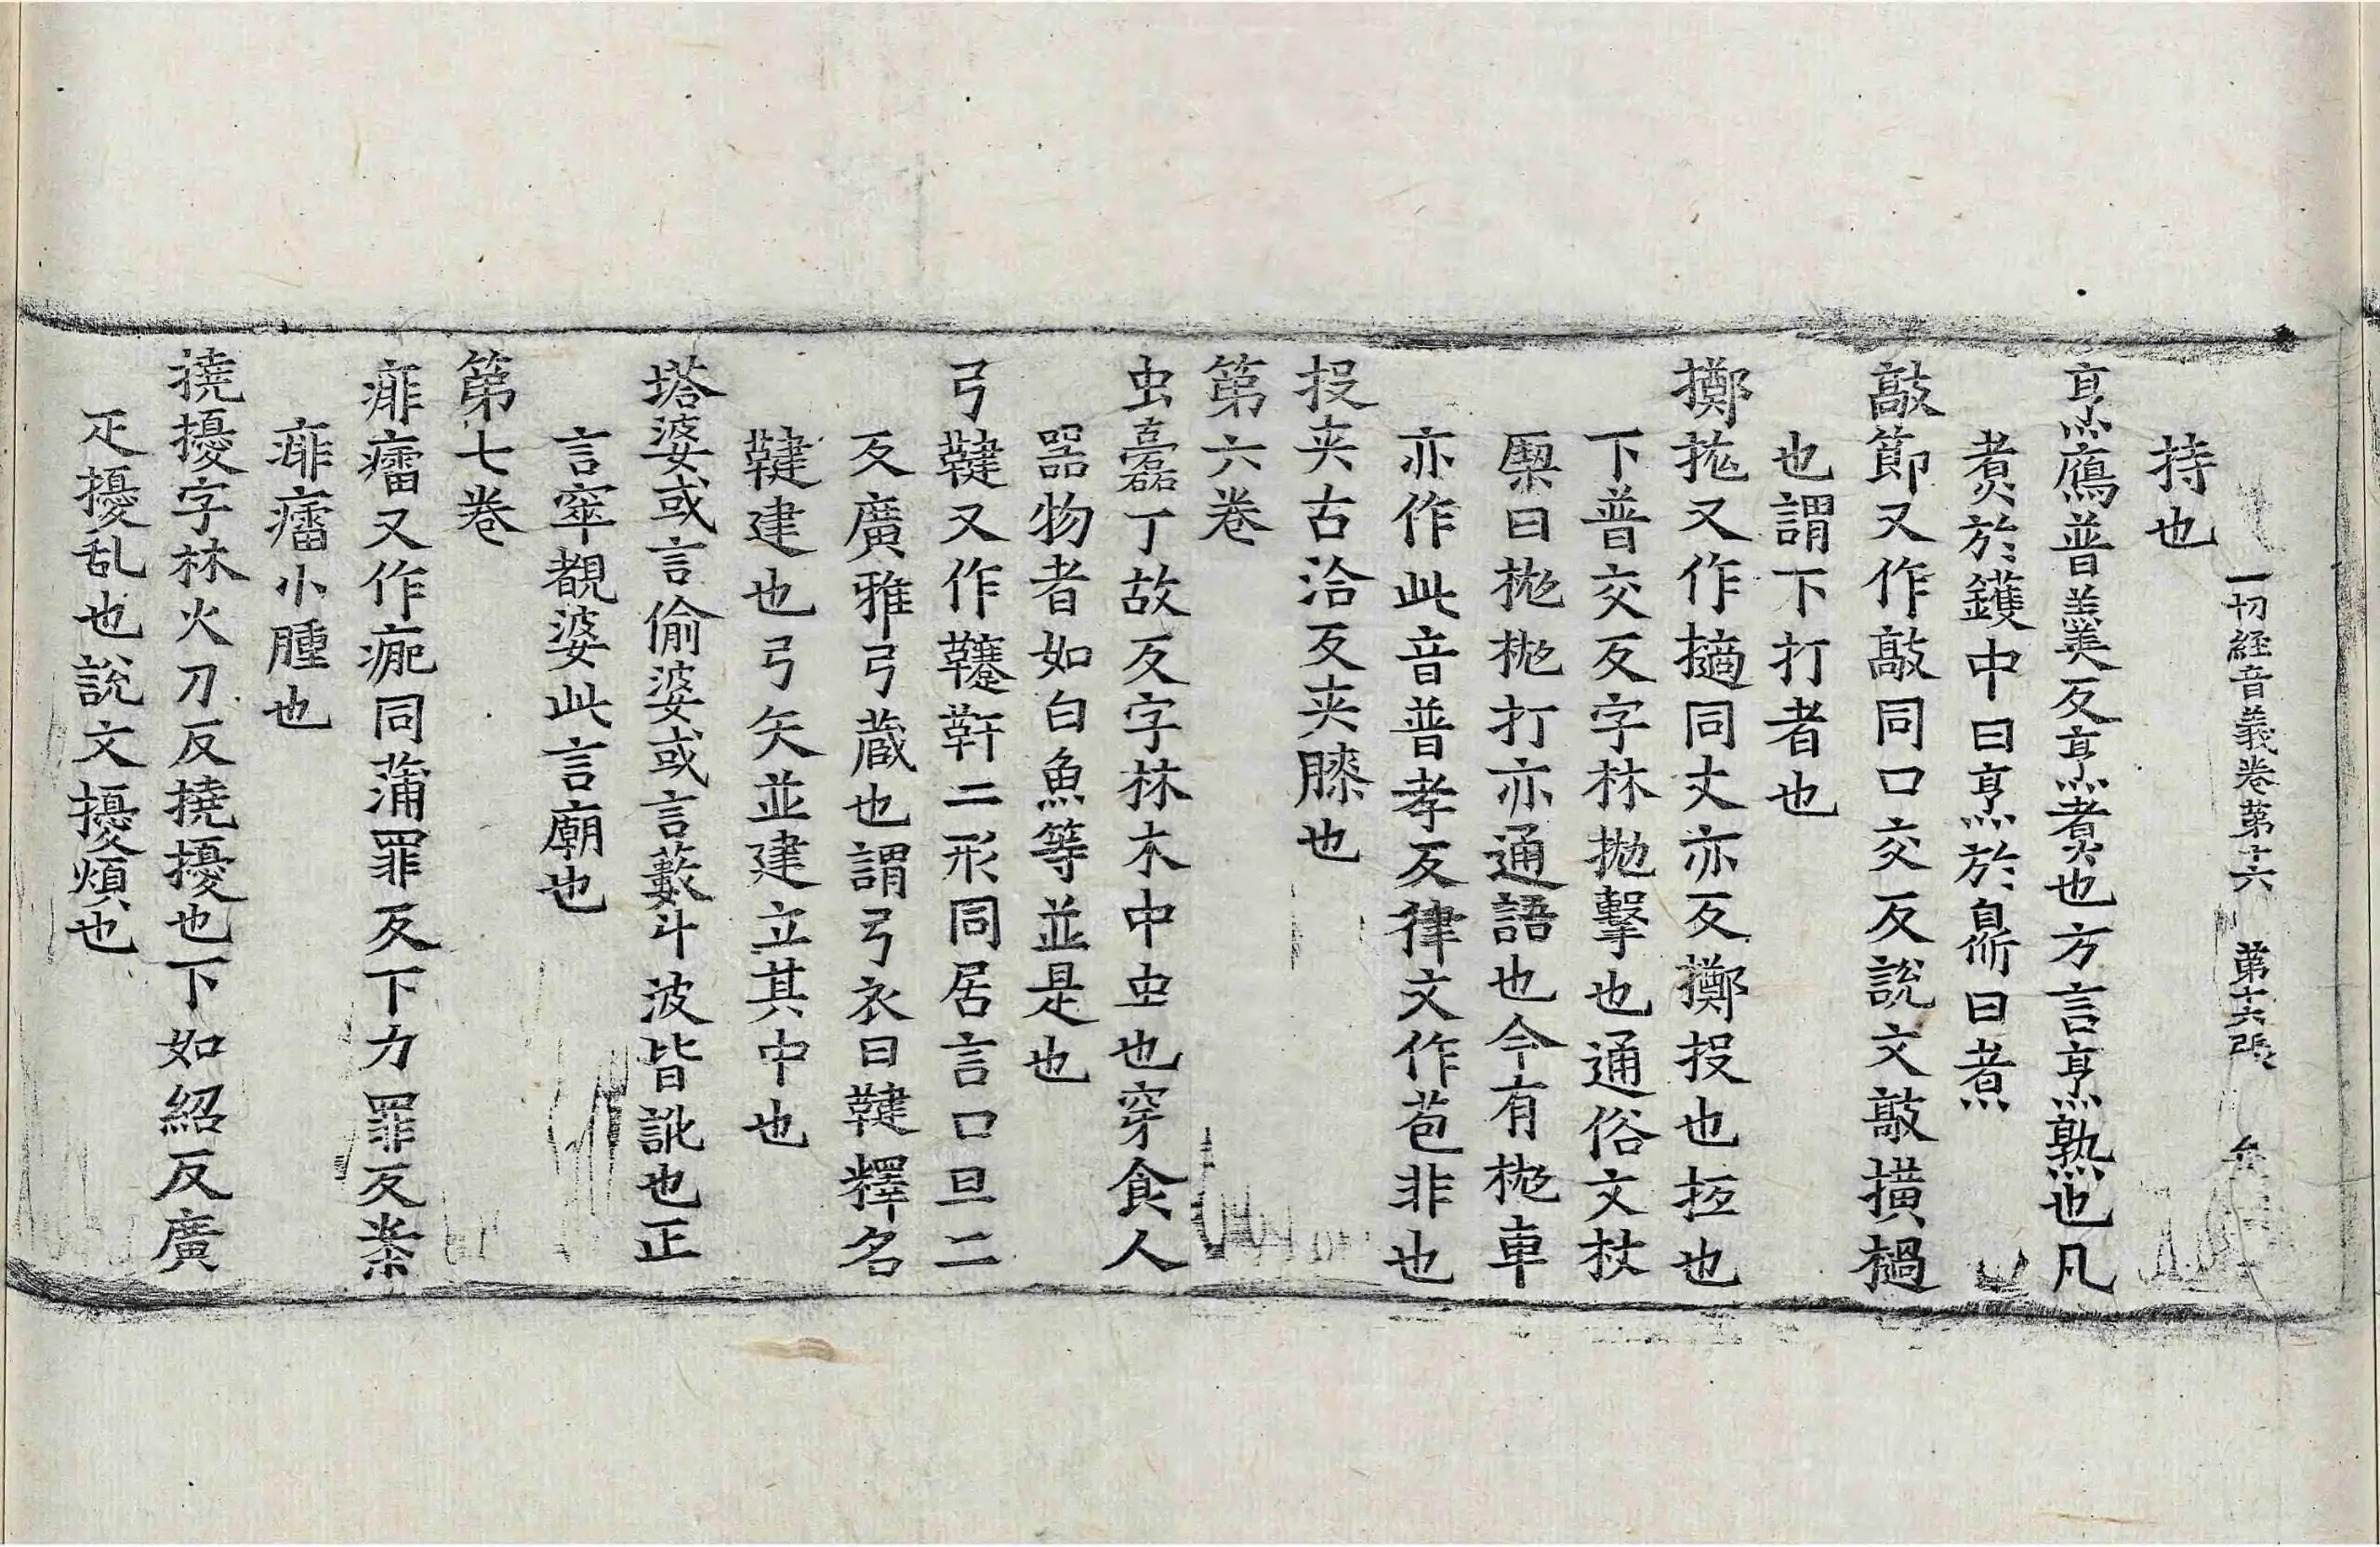 一切經音義卷第十六 第十六張
持也
亨鴈普羹反亨煑也方言亨熟也凡
煑於鑊中曰亨於𦚾曰煑
敲節又作毃同口交反說文敲撗檛
也謂下打者也
擲拋又作擿同丈亦反擲投也抂也
下普交反字林拋擊也通俗文杖
槩曰拋拋打亦通語也今有拋車
亦作此音普孝反律文作苞非也
投夾古洽反夾膝也
第六卷
虫蠧丁故反字林木中虫也穿食人
器物者如白魚等並是也
弓鞬又作韆䩑二形同居言口旦二
反廣雅弓蔵也謂弓衣曰鞬釋名
鞬建也弓矢並建立其中也
塔婆或言偷婆或言藪斗波皆訛也正
言窣覩婆此言廟也
第七卷
痱癗又作㾦同蒲罪反下力罪反案
痱癗小腫也
撓擾字林火刀反撓擾也下如紹反廣
疋擾乱也說文擾煩也